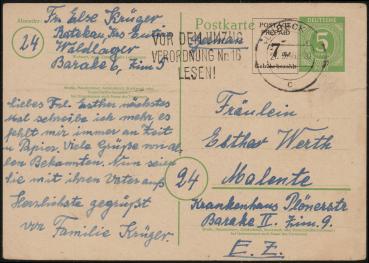 Absender:
Fr. Else Krüger
24
Ratekau, Krs. Eutin
Waldlager
Barake 6, Zim 5
liebes Frl. Esther nächstes
Mal schreibe ich mehr es
fehlt mir immer an Zeit
u. Papier. Viele Grüße von al-
len Bekannten. Nun seien
Sie mit ihren Vater aufs
Herzlichste gegrüßt
von Familie Krüger.
Postkarte
VOR DEM UMZUG
VERORDNUNG Nr. 16
LESEN!
DEUTSCHE
5
c
Fräulein
Esther Werth
24
Malente
Krankenhaus Plönerstr
Barake II. Zim. 9.
E. Z.